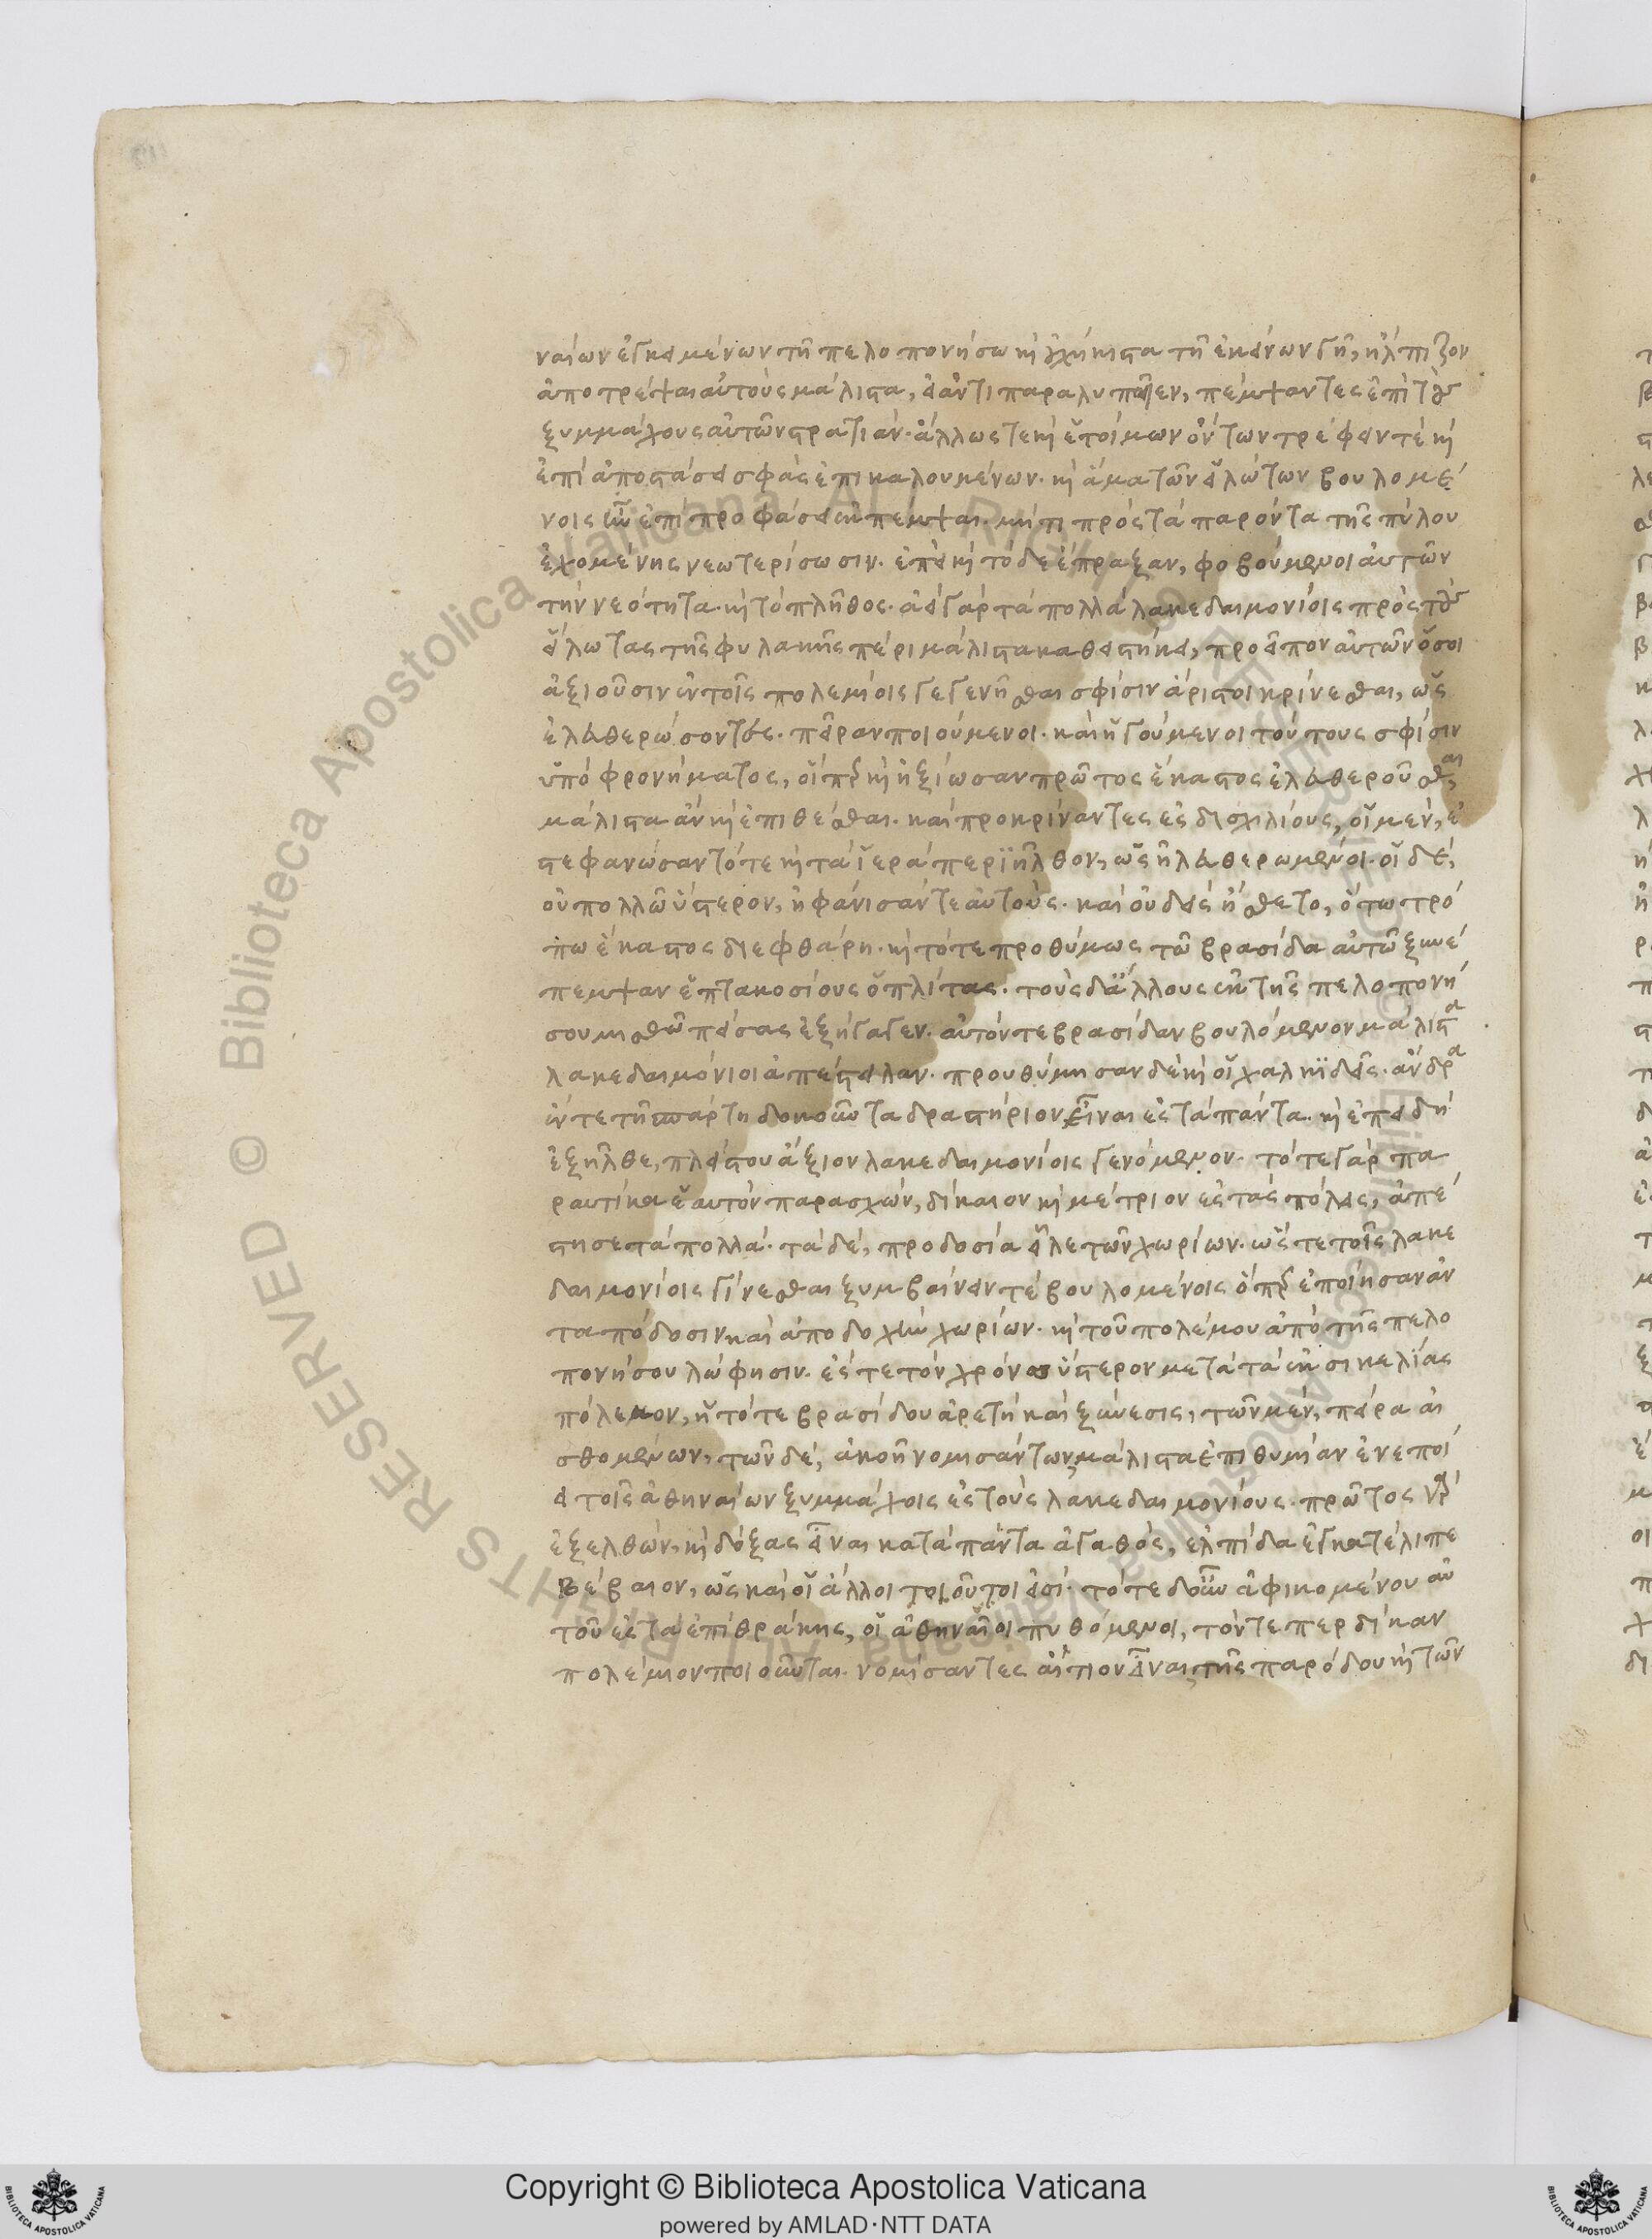 ναίων ἐγκειμένων τῆ πελοπονήσω κὶ οὐχήκιστα τῆ ἐκείνων γῆ, ἤλπιζον
ἀποτρέψαι αὐτοὺς μάλιστα, εἰ ἀντιπαραλυποῖεν, πέμψαντες ἐπὶ τοὺς
ξυμμάχους αὐτῶν στρατιάν· ἄλλως τε κὶ ἑτοίμων ὄντων τρέφειν τέ κὶ
ἐπὶ ἀποστάσει σφᾶς ἐπικαλουμένων. κὶ ἅμα τῶν εἱλώτων βουλομέ
νοις ἦν ἐπὶ προφάσει ἐκπέμψαι. μή τι πρὸς τὰ παρόντα τῆς πύλου
ἐχομένης νεωτερίσωσιν. ἐπεὶ κὶ τόδε ἔπραξαν, φοβούμενοι αὐτῶν
τὴν νεότητα· κὶ τὸ πλῆθος· ἀεὶ γὰρ τὰ πολλὰ λακεδαιμονίοις πρὸς τοὺς
εἵλωτας τῆς φυλακῆς πέρι μάλιστα καθειστήκει, προεῖπον αὐτῶν ὅσοι
ἀξιοῦσιν ἐν τοῖς πολεμίοις γεγενῆσθαι σφίσιν ἄριστοι κρίνεσθαι, ὡς
ἐλευθερώσοντες· πεῖραν ποιούμενοι· καὶ ἡγούμενοι τούτους σφίσιν
ὑπὸ φρονήματος, οἵπερ κὶ ἠξίωσαν πρῶτος ἕκαστος ἐλευθεροῦσθαι,
μάλιστα ἂν κὶ ἐπιθέσθαι. καὶ προκρίναντες ἐς δισχιλίους, οἱ μέν, ἐ
στεφανώσαντό τε κὶ τὰ ἱερὰ περιῆλθον, ὡς ἠλευθερωμένοι· οἱ δέ,
οὐ πολλῶ ὕστερον, ἠφάνισάν τε αὐτούς· καὶ οὐδεὶς ἤσθετο, ὅτω τρό
πω ἕκαστος διεφθάρη. κὶ τότε προθύμως τῶ βρασίδα αὐτῶ ξυνέ
πεμψαν ἑπτακοσίους ὁπλίτας· τοὺς δ' ἄλλους ἐκ τῆς πελοπονή
σου μισθῶ πείσας ἐξήγαγεν. αὐτόν τε βρασίδαν βουλόμενον μάλιστα
λακεδαιμόνιοι ἀπέστειλαν. προυθύμησαν δὲ κὶ οἱ χαλκϊδεῖς. ἄνδρα
ἔν τε τῆ σπάρτη δοκοῦντα δραστήριον εἶναι ἐς τὰ πάντα. κὶ ἐπειδὴ
ἐξῆλθε, πλείστου ἄξιον λακεδαιμονίοις γενόμενον. τό τε γὰρ πα
ραυτίκα ἑαυτὸν παρασχών, δίκαιον κὶ μέτριον ἐς τὰς πόλεις, ἀπέ
στησε τὰ πολλά· τὰ δέ, προδοσία εἷλε τῶν χωρίων· ὥστε τοῖς λακε
δαιμονίοις γίνεσθαι ξυμβαίνειν τέ βουλομένοις ὅπερ ἐποίησαν ἀν
ταπόδοσιν καὶ ἀποδοχὴν χωρίων. κὶ τοῦ πολέμου ἀπὸ τῆς πελο
πονήσου λώφησιν. ἔς τε τὸν χρόνω ὕστερον μετὰ τὰ ἐκ σικελίας
πόλεμον, ἡ τότε βρασίδου ἀρετὴ καὶ ξύνεσις, τῶν μέν, πείρα αι
σθομένων, τῶν δέ, ἀκοῆ νομισάντων, μάλιστα ἐπιθυμίαν ἐνεποί
ει τοῖς ἀθηναίων ξυμμάχοις ἐς τοὺς λακεδαιμονίους. πρῶτος γὰρ
ἐξελθών, κὶ δόξας εἶναι κατὰ πάντα ἀγαθός, ἐλπίδα ἐγκατέλιπε
βέβαιον, ὡς καὶ οἱ ἄλλοι τοιοῦτοι εἰσί. τότε δ' οὖν ἀφικομένου αὐ
τοῦ ἐς τὰ ἐπὶ θράκης, οἱ ἀθηναῖοι πυθόμενοι, τόν τε περδίκαν
πολέμιον ποιοῦνται. νομίσαντες αἴτιον εἶναι τῆς παρόδου κὶ τῶν
Copyright © Biblioteca Apostolica Vaticana
powered by AMLAD·NTT DATA